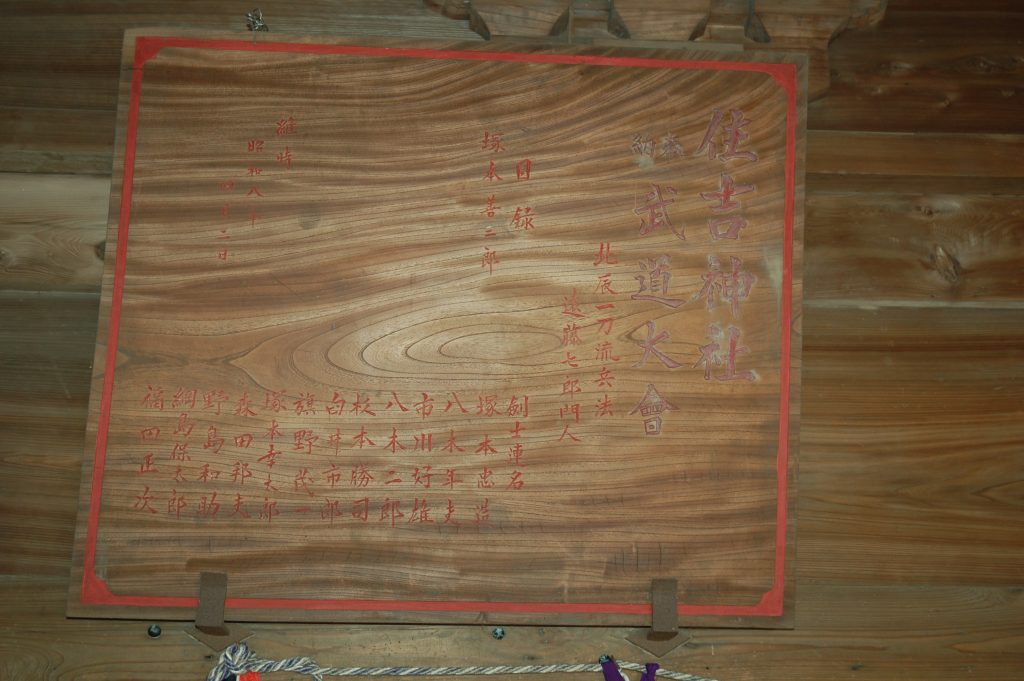 住吉神社
奉納
武道大會
北辰一刀流兵法
遠藤七郎門人
目録
塚本善二郎
剣士連名
塚本忠
八木年夫
市川好雄
八木二郎
松本勝司
白井市郎
旗野茂一
塚本幸太郎
森田邦夫
野島和助
綱島保太郎
福田正次
維時
昭和八年
四月二日